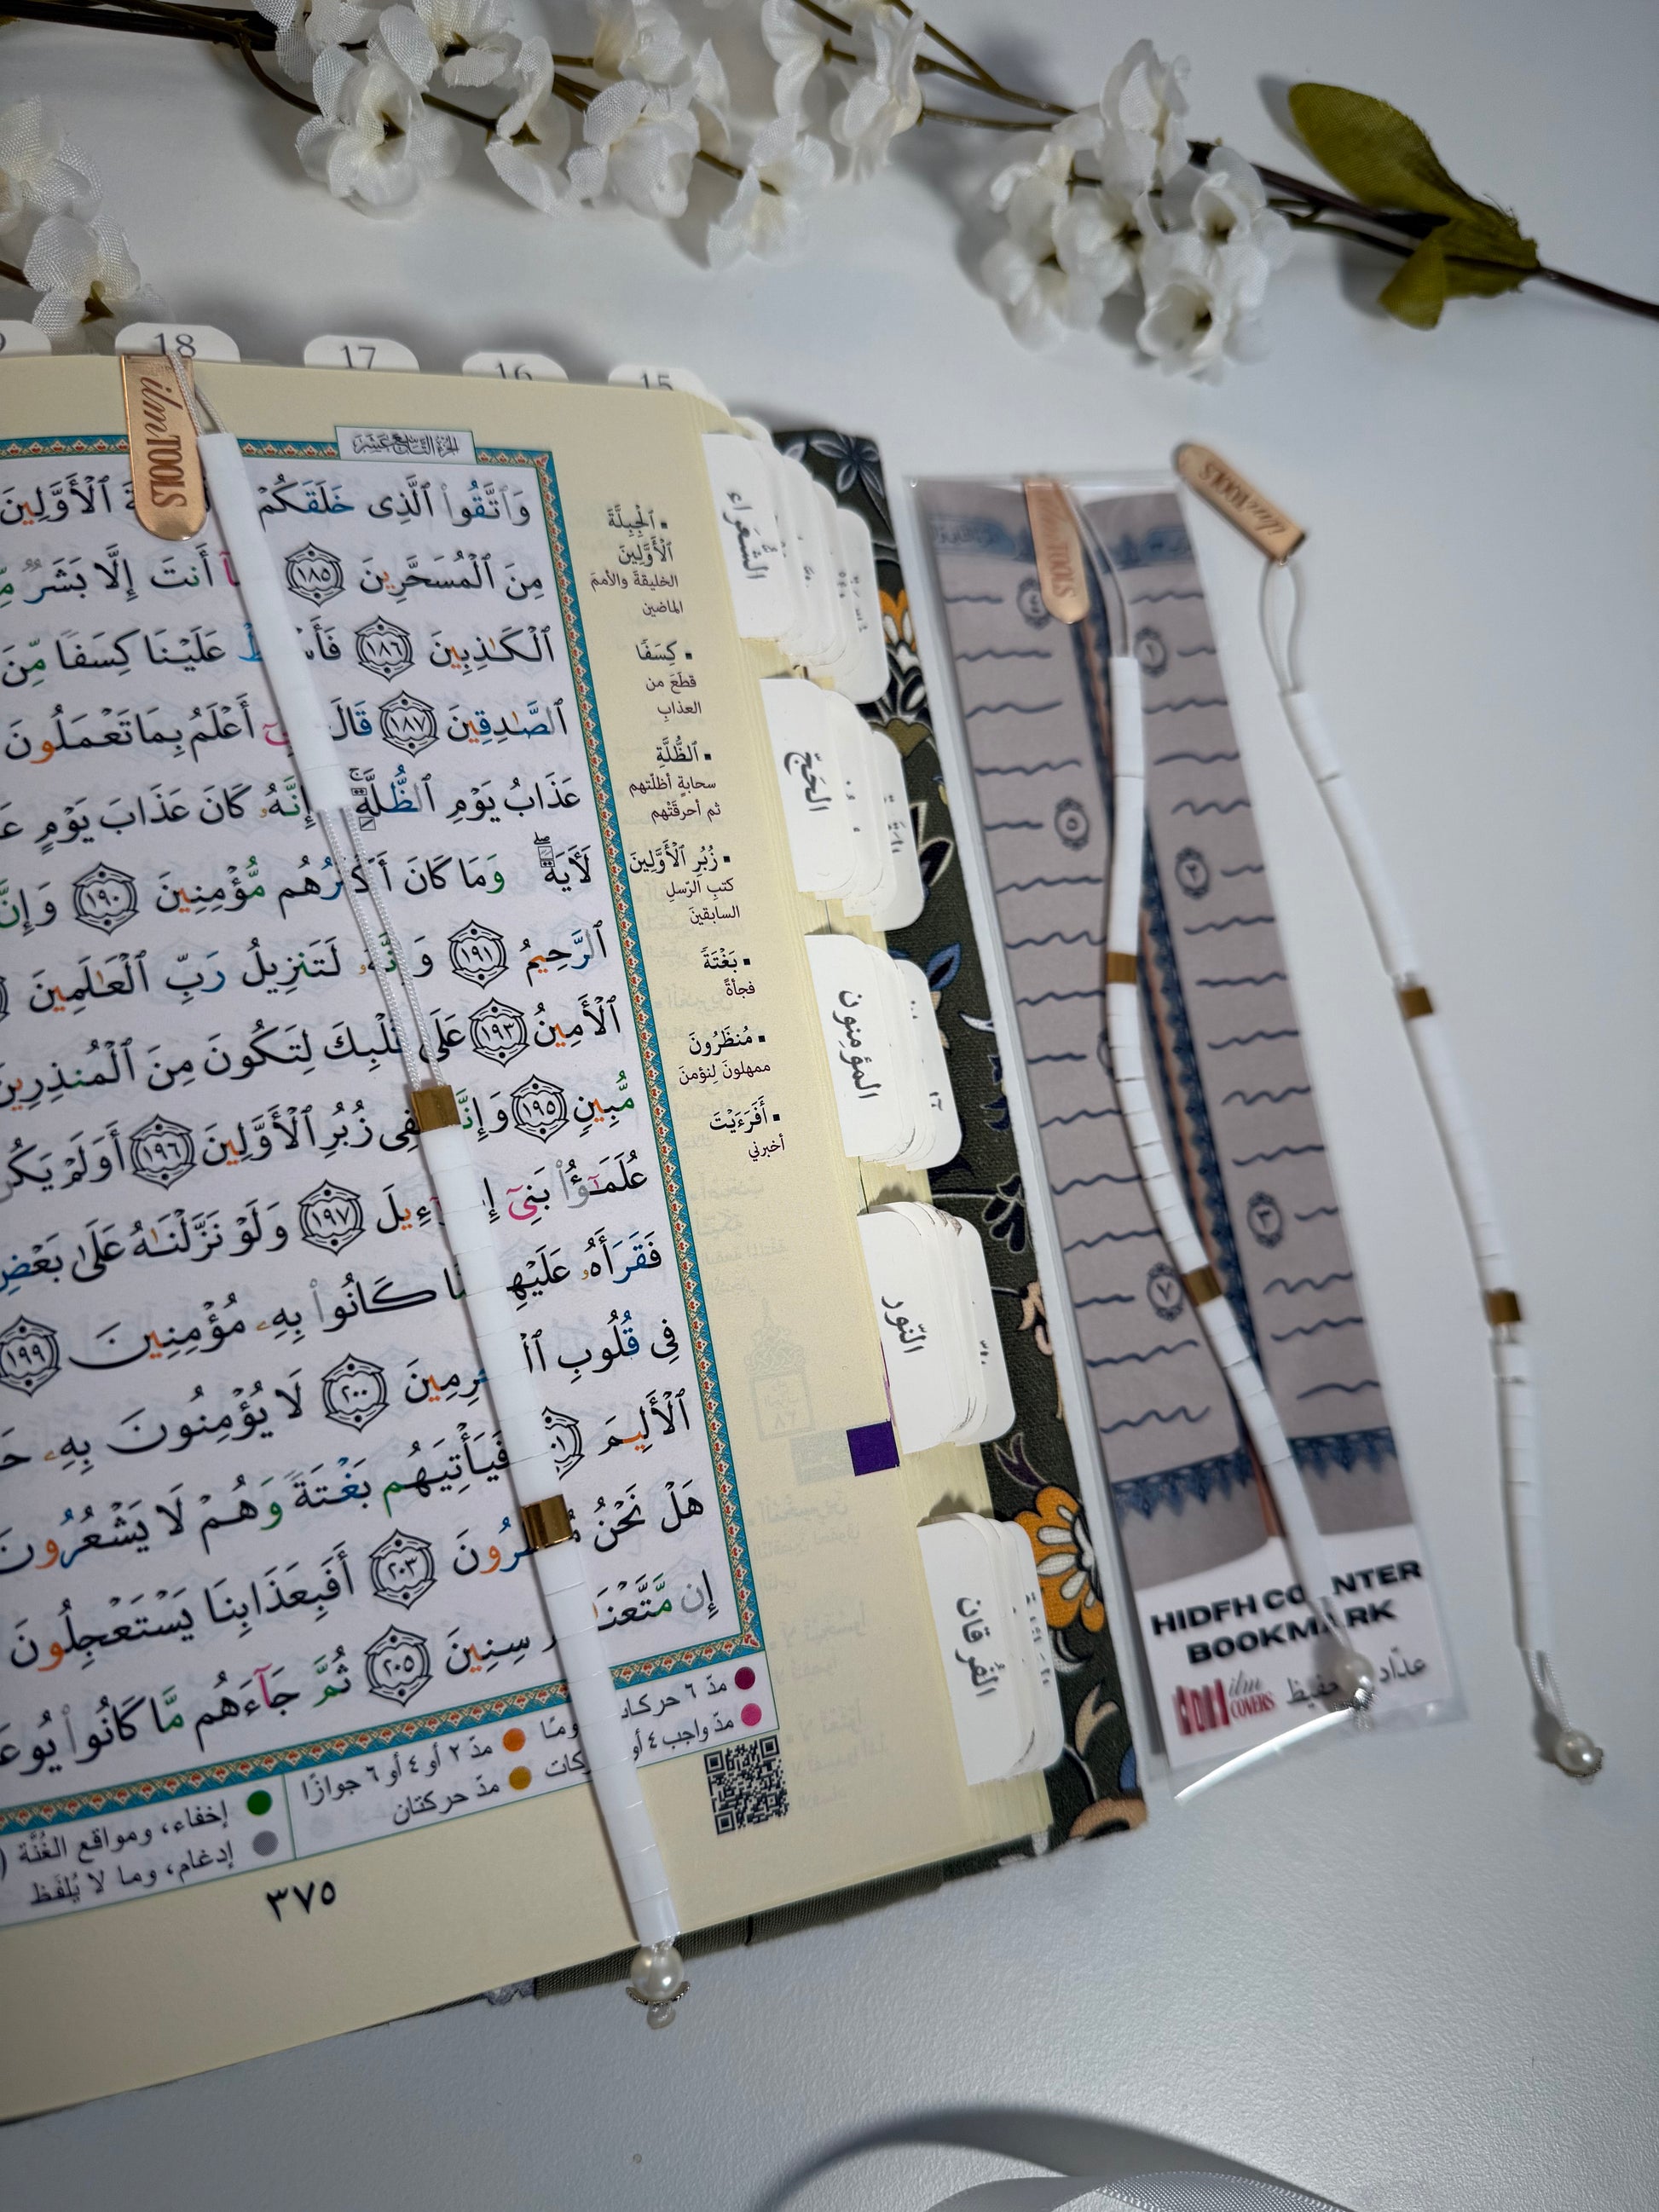 18
17
16
15
ilmTOOLS
ilmTOOLS
ilmTOOLS
الجزء التاسع عشر
وَٱتَّقُوا۟ ٱلَّذِى خَلَقَكُمْ ٱلْأَوَّلِينَ
مِنَ ٱلْمُسَحَّرِينَ ١٨٥ أَنتَ إِلَّا بَشَرٌ
ٱلْكَـٰذِبِينَ ١٨٦ عَلَيْنَا كِسَفًا مِّنَ
ٱلصَّـٰدِقِينَ ١٨٧ قَالَ أَعْلَمُ بِمَا تَعْمَلُونَ
عَذَابُ يَوْمِ ٱلظُّلَّةِ ۚ إِنَّهُۥ كَانَ عَذَابَ يَوْمٍ
لَـَٔايَةً ۖ وَمَا كَانَ أَكْثَرُهُم مُّؤْمِنِينَ ١٩٠
ٱلرَّحِيمُ ١٩١ وَإِنَّهُۥ لَتَنزِيلُ رَبِّ ٱلْعَـٰلَمِينَ
ٱلْأَمِينُ ١٩٣ عَلَىٰ قَلْبِكَ لِتَكُونَ مِنَ ٱلْمُنذِرِينَ
مُّبِينٍ ١٩٥ وَإِنَّهُۥ لَفِى زُبُرِ ٱلْأَوَّلِينَ ١٩٦ أَوَلَمْ يَكُن
عُلَمَـٰٓؤُا۟ بَنِىٓ إِسْرَٰٓءِيلَ ١٩٧ وَلَوْ نَزَّلْنَـٰهُ عَلَىٰ بَعْضِ
فَقَرَأَهُۥ عَلَيْهِم مَّا كَانُوا۟ بِهِۦ مُؤْمِنِينَ ١٩٩
فِى قُلُوبِ ٱلْمُجْرِمِينَ ٢٠٠ لَا يُؤْمِنُونَ بِهِۦ
ٱلْأَلِيمَ فَيَأْتِيَهُم بَغْتَةً وَهُمْ لَا يَشْعُرُونَ
هَلْ نَحْنُ مُنظَرُونَ ٢٠٣ أَفَبِعَذَابِنَا يَسْتَعْجِلُونَ
إِن مَّتَّعْنَـٰهُمْ سِنِينَ ٢٠٥ ثُمَّ جَآءَهُم مَّا كَانُوا۟
▪ ٱلْجِبِلَّةَ
ٱلْأَوَّلِينَ
الخليقةَ والأممَ
الماضين
▪ كِسَفًا
قطَعَ من
العذابِ
▪ ٱلظُّلَّةِ
سحابةٍ أظلّتهم
ثم أحرقتْهم
▪ زُبُرِ ٱلْأَوَّلِينَ
كتبِ الرّسلِ
السابقينَ
▪ بَغْتَةً
فجأةً
▪ مُنظَرُونَ
ممهلونَ لِنؤمنَ
▪ أَفَرَءَيْتَ
أخبرني
الشعراء
الحَجّ
المؤمنون
النّور
الفُرقان
مدّ ٦ حركات
مدّ واجب ٤ أو
مدّ ٢ أو ٤ أو ٦ جوازًا
مدّ حركتان
إخفاء، ومواقع الغُنَّة
إدغام، وما لا يُلفَظ
٣٧٥
HIDFH COUNTER
BOOKMARK
ilm
COVERS
عدّاد حفيظ